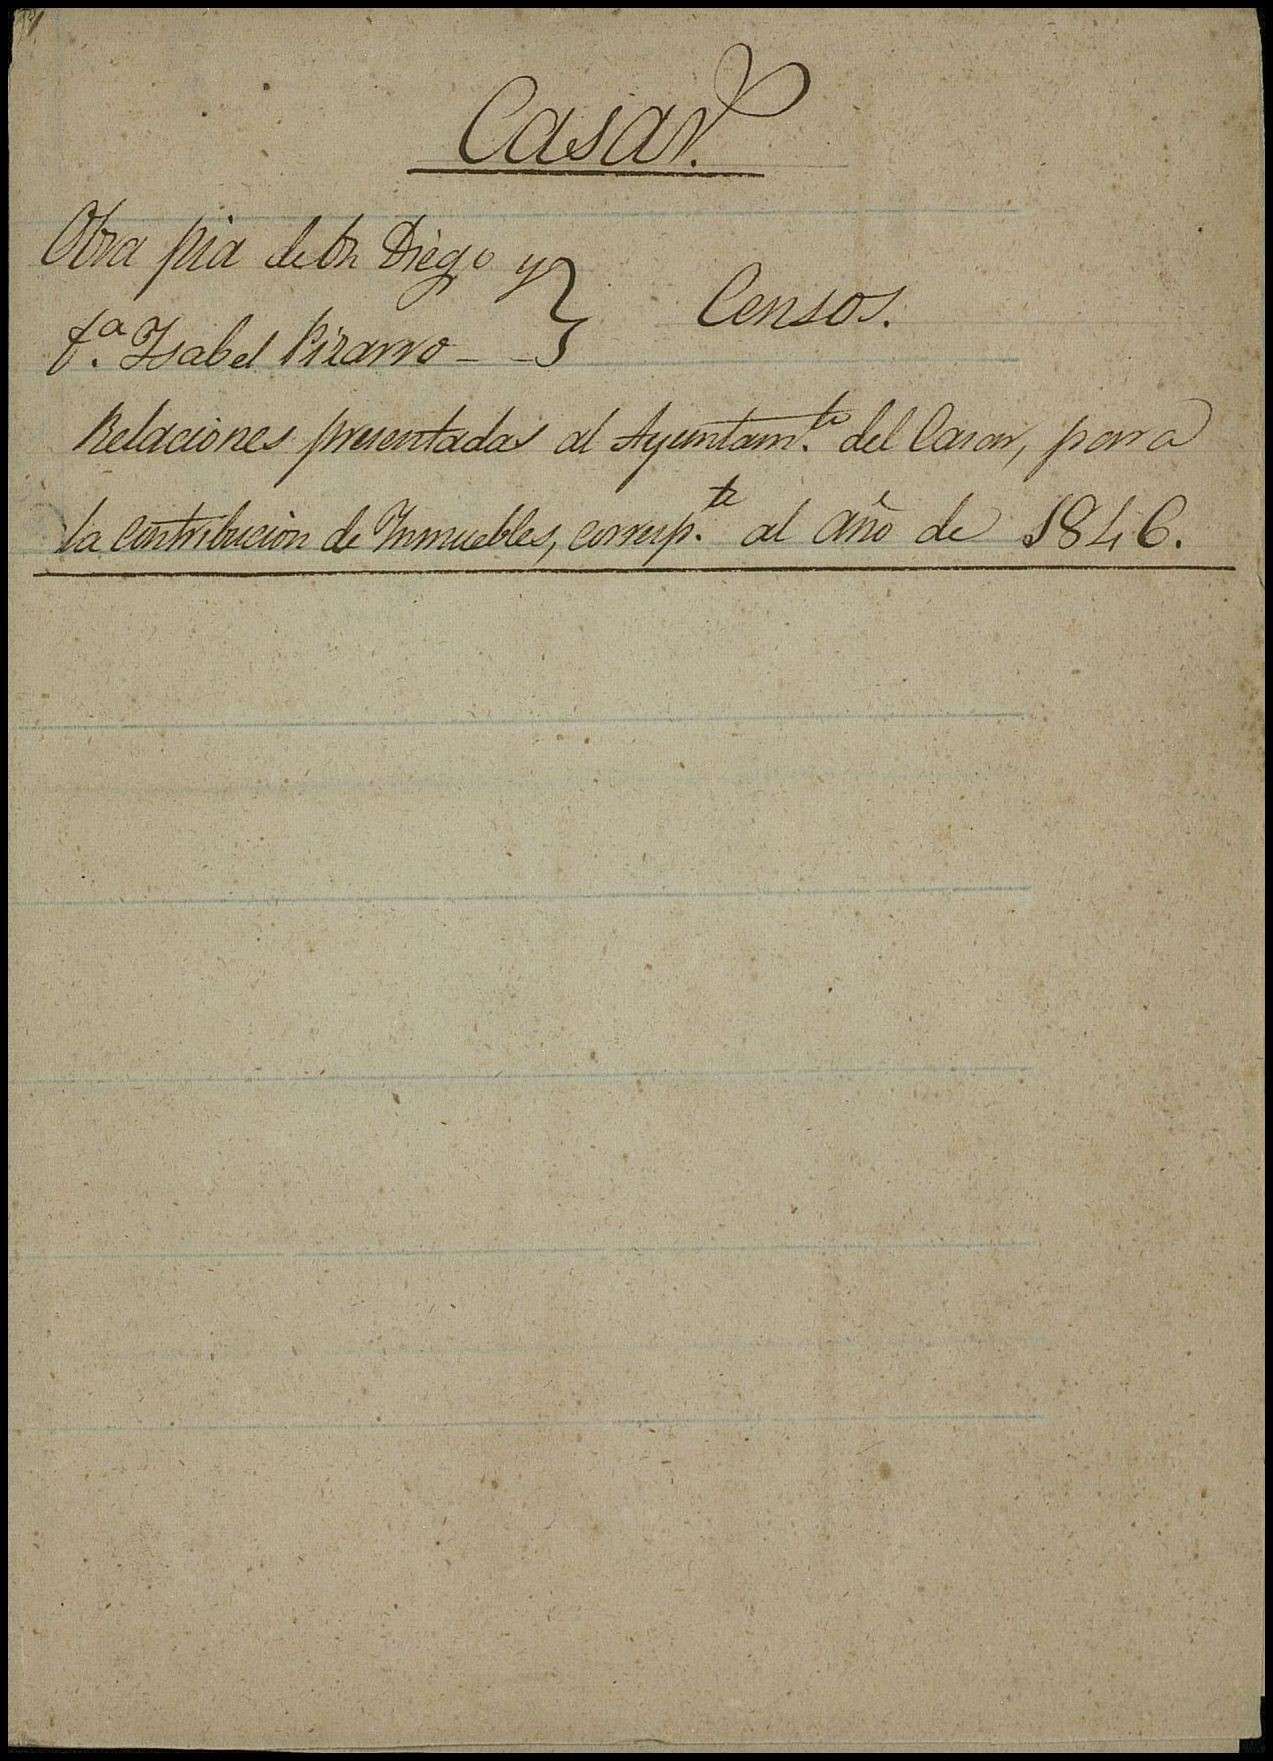 Casar.
Obra pia de Dn Diego y
D.ª Isabel Pizarro - -
Censos.
Relaciones presentadas al Ayuntam.to del Casar, para
la contribucion de Inmuebles, corresp.te al año de 1846.